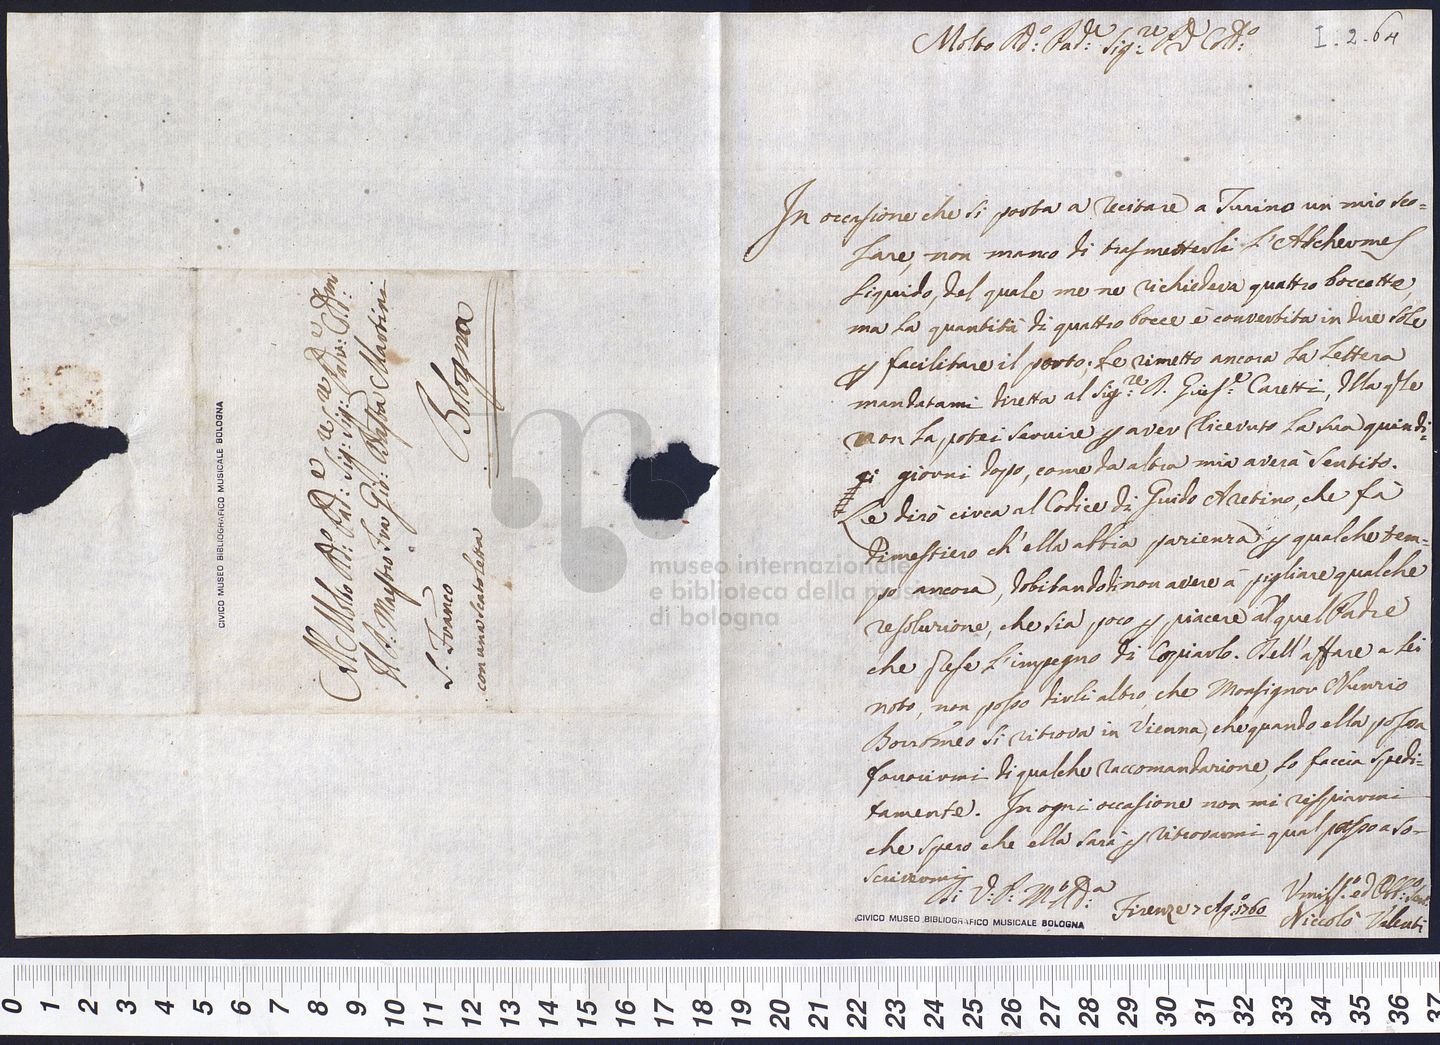 Al Molto Rdo: Pad:re Sig:re Sig:re Padre: Col:mo
Il P: Maestro Fra Gio: Batta Martini
Bologna
S. Franco
con una scatoletta
CIVICO MUSEO BIBLIOGRAFICO MUSICALE BOLOGNA
I. 2. 64
Molto Rdo: Pad:re Sig:re
In occasione che si porta a recitare a Turino un mio sco-
lare, non manco di trasmetterli l'Alchermes
liquido, del quale me ne richiedeva quattro boccette,
ma la quantità di quattro bocce è convertita in due sole
p facilitare il porto. Le rimetto ancora la Lettera
mandatami diretta al Sig:re D. Gius:e Caretti, dlla qle
non la potei servire p aver ricevuto la sua quindi-
ci giorni dopo, come da altra mia averà sentito.
Le dirò circa al Codice di Guido Aretino, che fà
dimestiero ch'ella abbia pazienza p qualche tem-
po ancora, dobitandodi non avere à pigliare qualche
resoluzione, che sia poco p piacere al quel Padre
che prese l'impegno di Copiarlo. Dell'affare a Lei
noto, non posso dirli altro, che Monsignor
Borromeo si ritrova in Vienna, che quando ella possa
favorirmi di qualche raccomandazione, lo faccia spedi-
tamente. In ogni occasione non mi risparmi
che spero che ella sarà p ritrovarmi qual posso a so-
scrivermi
Di V: P: M:to R:da
Firenze 7 Ag:o 1760
Umiss:o ed Obb:o Serv:
Niccolò Valenti
CIVICO MUSEO BIBLIOGRAFICO MUSICALE BOLOGNA
museo internazionale
e biblioteca della musica
di bologna
0 1 2 3 4 5 6 7 8 9 10 11 12 13 14 15 16 17 18 19 20 21 22 23 24 25 26 27 28 29 30 31 32 33 34 35 36 37